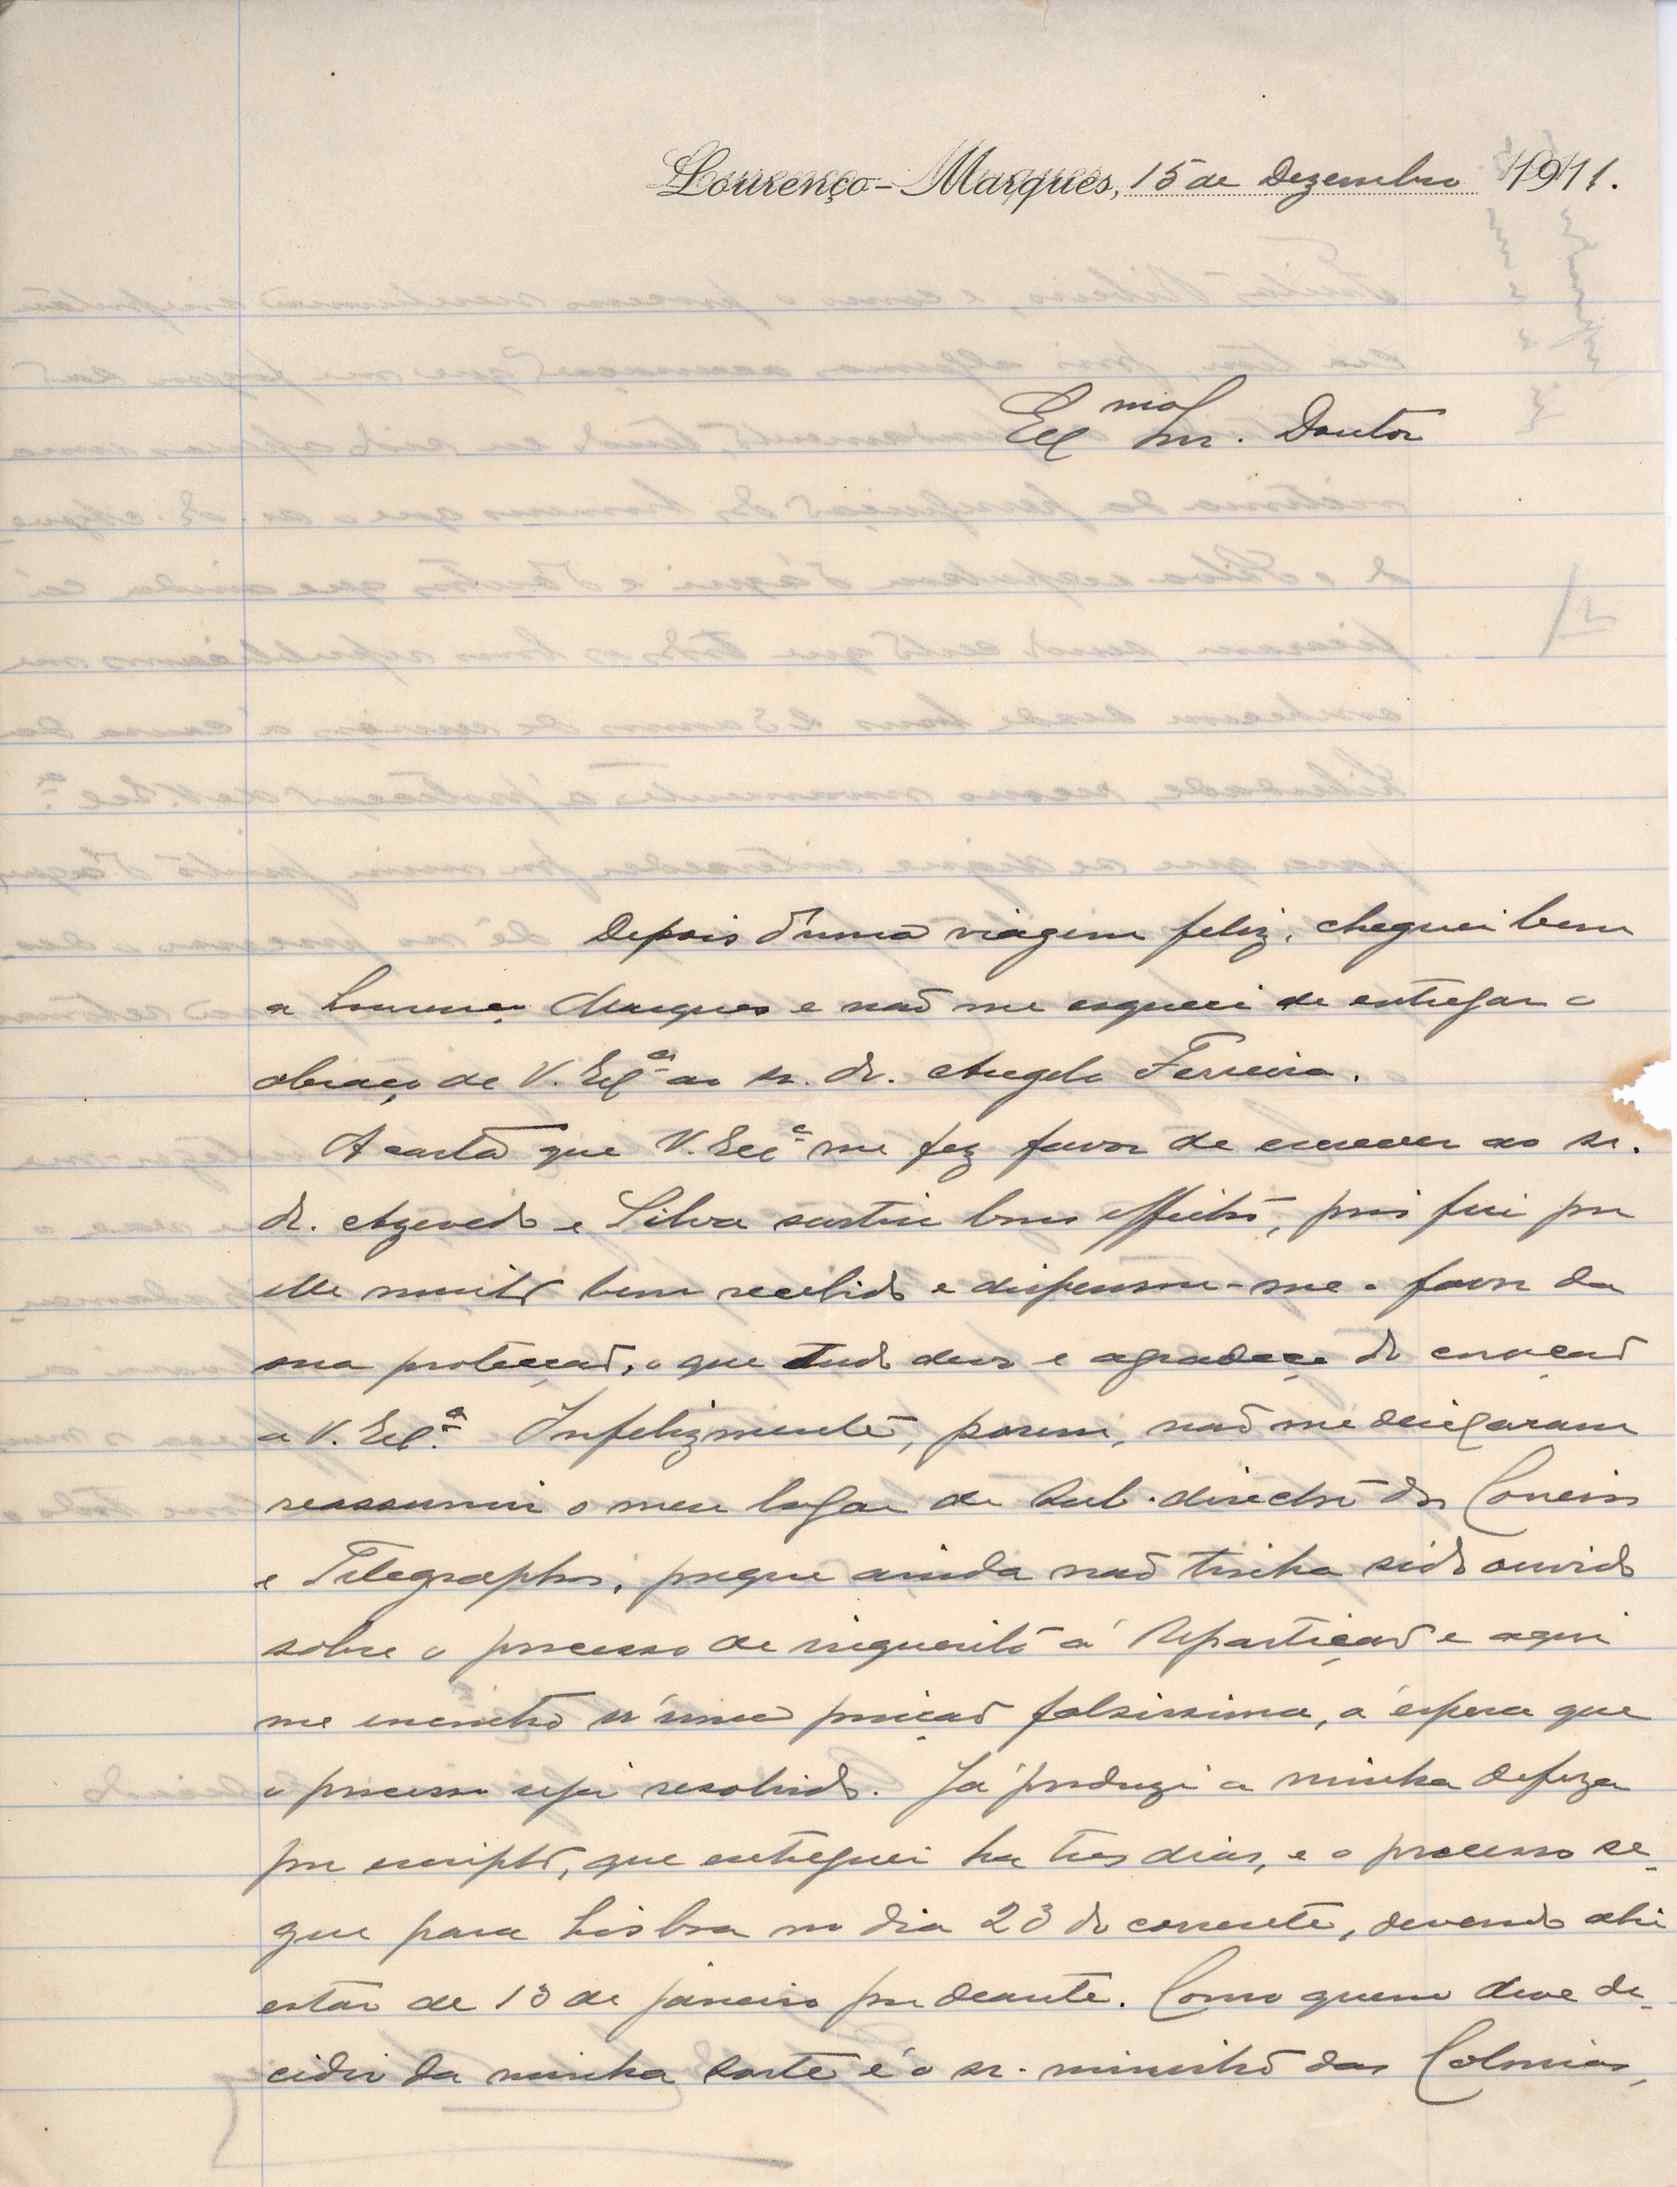 Lourenço-Marques, 15 de Dezembro 1911.
Exmo Snr. Doutor
Depois d'uma viagem feliz, cheguei bem
a Lourenço Marques e não me esqueci de entregar o
abraço de V. Exª ao sr. dr. Angelo Ferreira.
A carta que V. Exª me fez favor de escrever ao sr.
dr. Azevedo e Silva surtiu bons effeitos, pois fui por
elle muito bem recebido e dispensou-me o favor da
sua protecção, o que tudo devo e agradeço do coração
a V. Exª. Infelizmente, porem, não me deixaram
reassumir o meu logar de sub-director dos Correios
e Telegraphos, porque ainda não tinha sido ouvido
sobre o processo de inquerito á Repartição e aqui
me encontro n'uma posição falsissima, á espera que
o processo seja resolvido. Já produzi a minha defeza
por escripto, que entreguei ha tres dias, e o processo se-
gue para Lisboa no dia 23 do corrente, devendo ahi
estar de 13 de janeiro por deante. Como quem deve de-
cidir da minha sorte é o sr. ministro das Colonias,